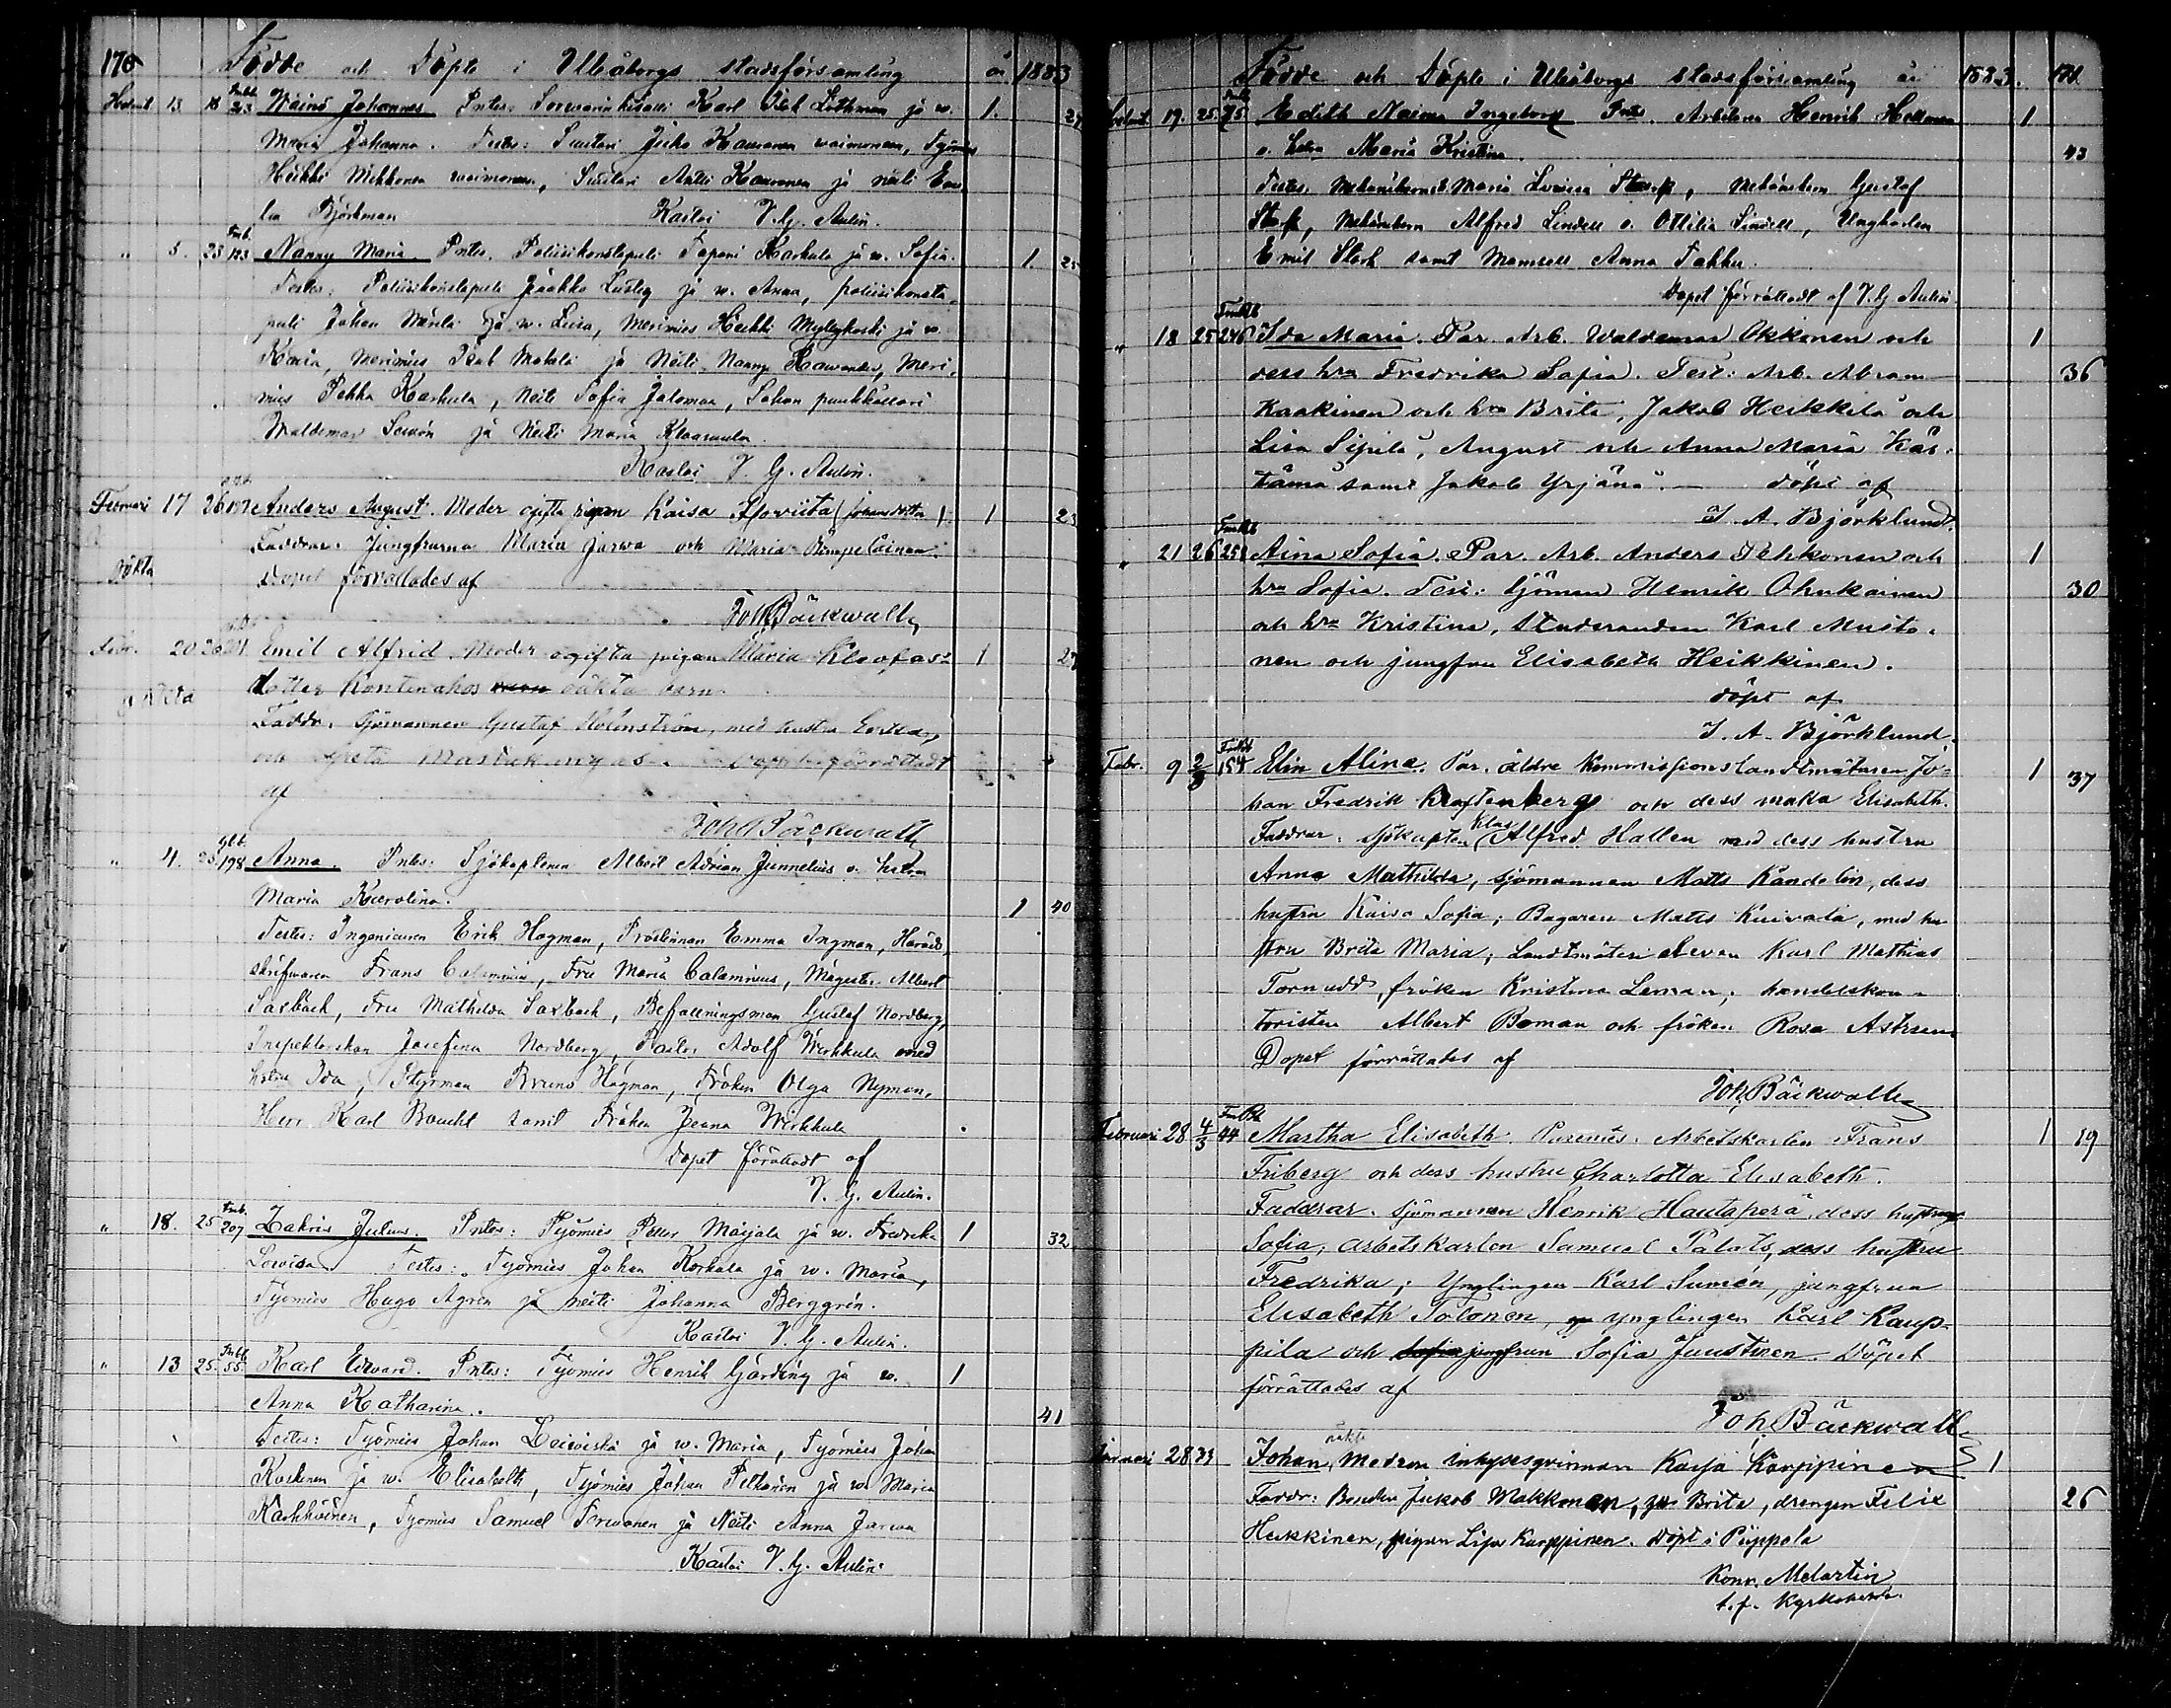 170 Födde och Döpte i Uleåborgs stadsförsamling år 1883
13 18 Wäinö Johannes. Pntes: Karl ja w. 1.
Maria Johanna. Testes: Suutari Juho waimonen, Työmies
Heikki Mikkonen waimonen, Suutari Antti ja neiti
Björkman Kastoi V. G. Aulin.
" 5. 25 123 Nanny Maria. Pntes. Poliisikonstapeli Tapani Karhula ja w. Sofia. 1 25
Testes: Poliisikonstapeli Jaakko ja w. Anna, poliisikonsta-
peli Johan ja w. Liisa, Merimies Heikki Myllykoski ja w.
Maria, Merimies ja Neiti Nanny Meri-
mies Pekka Karhula, Neiti Sofia Jalomaa,
Waldemar ja Neiti Maria
Kastoi V. G. Aulin.
Februari 17 26 Anders August. Moder ogifta pigan Kaisa (Johansdotter) 1 23
Faddrar: Jungfrurna Maria Jarwa och Maria Rimpeläinen.
oäkta Dopet förrättades af
Joh. Bäckwall
Febr. 20 26 Emil Alfrid. Moder ogifta pigan Maria Kleofas- 1 27
dotter Kontinahos oäkta barn.
Faddr. Sjömannen Gustaf Holmström, med hustra
och förrättadt
af
Joh. Bäckwall
" 4. 25 198 Anna. Pntes: Sjökaptenen Albert Adrian Junnelius o. hstru
Maria Karolina. 1 40
Testes: Ingeniören Erik Hagman, Prostinnan Emma Ingman, Härads-
skrifvaren Frans Calamnius, Fru Maria Calamnius, Magister Albert
Saxbäck, Fru Mathilda Saxbäck, Befallningsman Gustaf Nordberg,
Inspektorskan Josefina Nordberg, Pastor Adolf Wirkkula med
hstru Ida, Styrman Bruno Hagman, Fröken Olga Nyman,
Herr Karl samt Fröken Jenna Wirkkula
Dopet förrättadt af
V. G. Aulin.
" 18. 25 207 Zakris Julius. Pntes: Työmies Petter Marjala ja w. Fredrika 1 32
Lowisa Testes: Työmies Johan Korkala ja w. Maria,
Työmies Hugo Agren ja neiti Johanna Berggrén.
Kastoi V. G. Aulin.
" 13 25. 55. Karl Edward. Pntes: Työmies Henrik Gårding ja w. 1
Anna Katharina. 41
Testes: Työmies Johan Leiwiskä ja w. Maria, Työmies Johan
Koskinen ja w. Elisabeth, Työmies Johan Pelkonen ja w. Maria
Karhköinen, Työmies Samuel Terwonen ja Neiti Anna Jarwa
Kastoi V. G. Aulin.
Födde och Döpte i Uleåborgs stadsförsamling år 1883. 171.
19. 25. 75 Edith Naima Ingeborg Pntes. Arbetaren Henrik Hellman 1
o. hstru Maria Kristina. 43
Testes. Maria Lovisa Stark, Gustaf
Stark, Alfred Lindell o. Ottilia Lindell, Ungkarlen
Emil Stark samt Mamsell Anna Takku.
Dopet förrättadt af V. G. Aulin
" 18 25 246 Ida Maria. Par. Arb. Waldemar Okkonen och 1
dess hru Fredrika Sofia. Test: Arb. Abram 36
Kaakinen och hru Brita, Jakob Heikkilä och
Lisa Sipilä, August och Anna Maria Kär-
tämä samt Jakob Yrjänä. — döpt af
J. A. Björklund.
" 21 26 258 Aina Sofia. Par. Arb. Anders Pehkonen och 1
hru Sofia. Test: Sjöman Henrik Ohukainen 30
och hru Kristina, Studeranden Karl Musto-
nen och jungfru Elisabeth Heikkinen.
döpt af
J. A. Björklund.
Febr. 9 2/3 154 Elin Alina. Par. äldre Kommissionslandtmätaren Jo- 1 37
han Fredrik Kraftenberg och dess maka Elisabeth.
Faddrar: sjökapten Klas Alfred Hallen med dess hustru
Anna Mathilda, sjömannen Matts Kandelin, dess
hustru Kaisa Sofia; Bagaren Matts Kuivala, med hu-
stru Brita Maria; Landtmäteri eleven Karl Mathias
Tornudd, fröken Kristina Leman; handelskon-
toristen Albert Boman och fröken Rosa
Dopet förrättades af
Joh. Bäckwall
Februari 28 4/3 44 Martha Elisabeth. Parentes: Arbetskarlen Frans 1 19
Friberg och dess hustru Charlotta Elisabeth.
Faddrar: Sjömannen Henrik Hautaperä, dess hustru
Sofia; arbetskarlen Samuel Palots, dess hustru
Fredrika; Ynglingen Karl Sumén, jungfrun
Elisabeth Tolonen, ynglingen Karl Kaup-
pila och Sofia Juustinen. Döpet
förrättades af
Joh. Bäckwall
Januari 28 Johan, oäkta Modren inhysesqvinnan Karppinen 1
Faddr: Bonden Jakob Makkonen, hru Brita, drengen Felix 26
Heikkinen, pigan Lisa Karppinen. Döpt i Piippola
Konr. Melartin
t. f. Kyrkoherde.